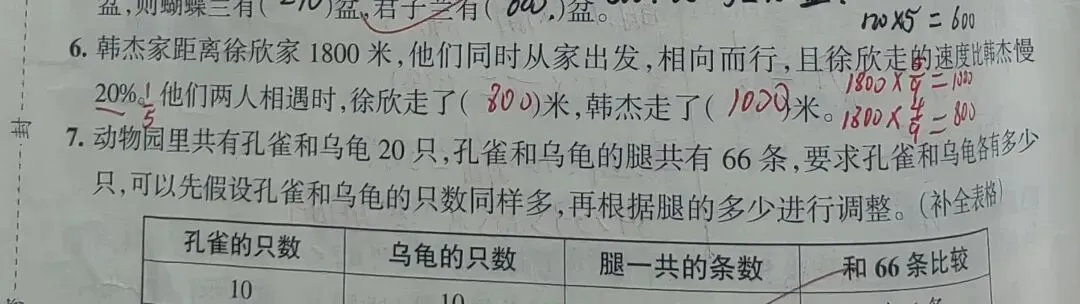 盆,则蝴蝶兰有(210)盆,君子兰有(600.)盆。
120×5=600
6. 韩杰家距离徐欣家 1800 米,他们同时从家出发,相向而行,且徐欣走的速度比韩杰慢
20%。1/5 他们两人相遇时,徐欣走了(800)米,韩杰走了(1000)米。
1800×5/9=1000
1800×4/9=800
7. 动物园里共有孔雀和乌龟 20 只,孔雀和乌龟的腿共有 66 条,要求孔雀和乌龟各有多少
只,可以先假设孔雀和乌龟的只数同样多,再根据腿的多少进行调整。(补全表格)
封
孔雀的只数 乌龟的只数 腿一共的条数 和 66 条比较
10 10 条